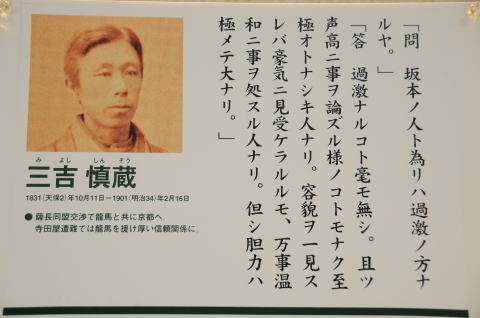 「問　坂本ノ人ト為リハ過激ノ方ナ
ルヤ。」
「答　過激ナルコト毫モ無シ。且ツ
声高ニ事ヲ論ズル様ノコトモナク至
極オトナシキ人ナリ。容貌ヲ一見ス
レバ豪気ニ見受ケラルルモ、万事温
和ニ事ヲ処スル人ナリ。但シ胆力ハ
極メテ大ナリ。」
み よし しん ぞう
三吉 慎蔵
1831(天保2)年10月11日−1901(明治34)年2月16日
●薩長同盟交渉で龍馬と共に京都へ。
寺田屋遭難では龍馬を援け厚い信頼関係に。